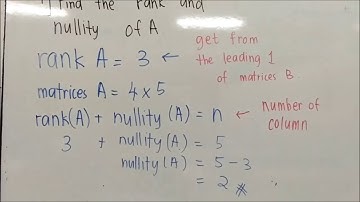 1) Find the rank and
nullity of A
rank A = 3 ← get from
the leading 1
of matrices B
matrices A = 4 × 5
rank(A) + nullity (A) = n ← number of
column
3 + nullity (A) = 5
nullity (A) = 5 - 3
= 2 *